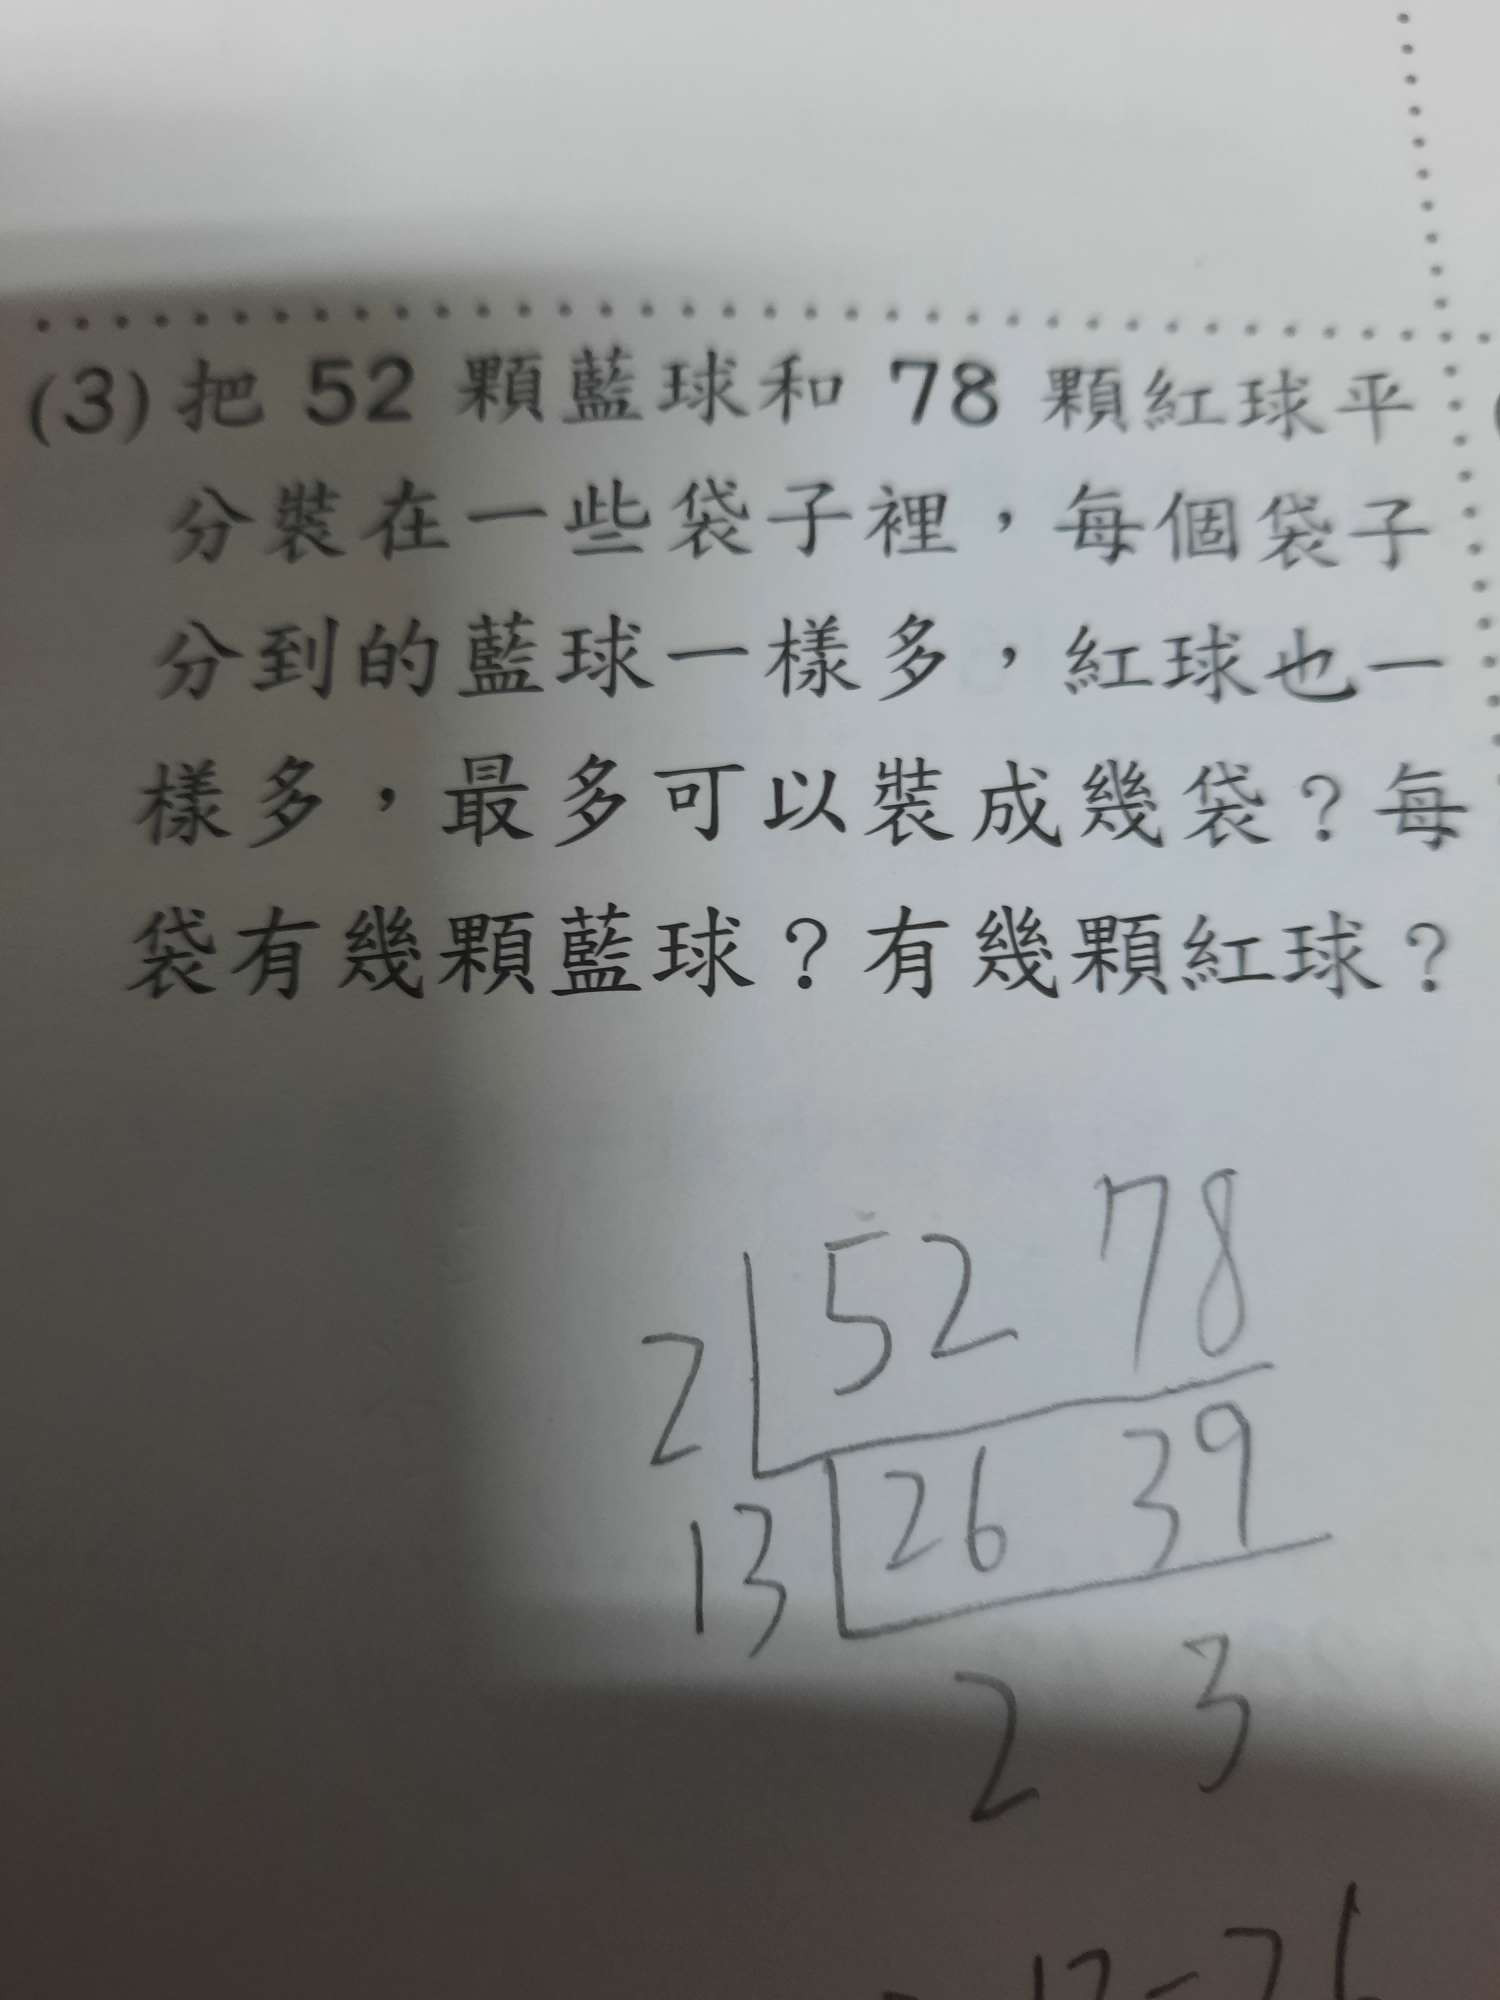 (3) 把 52 顆藍球和 78 顆紅球平
分裝在一些袋子裡，每個袋子
分到的藍球一樣多，紅球也一
樣多，最多可以裝成幾袋？每
袋有幾顆藍球？有幾顆紅球？
2 52 78
13 26 39
2 3